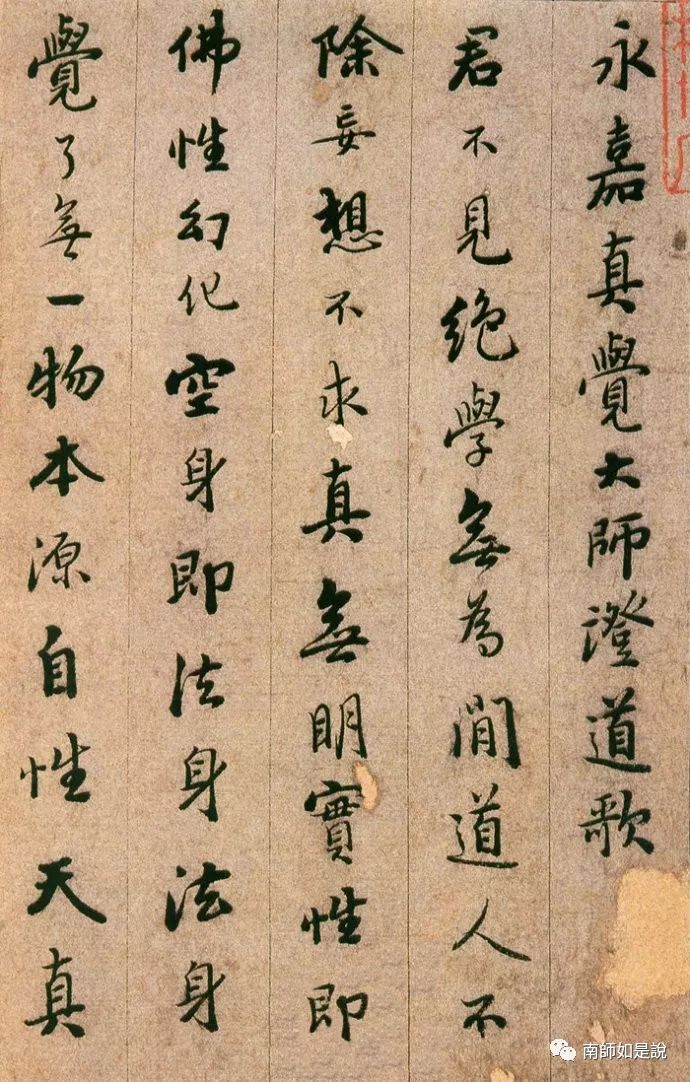 永嘉真覺大師澄道歌
君不見絕學無為閒道人不
除妄想不求真無明實性即
佛性幻化空身即法身法身
覺了無一物本源自性天真
南師如是說